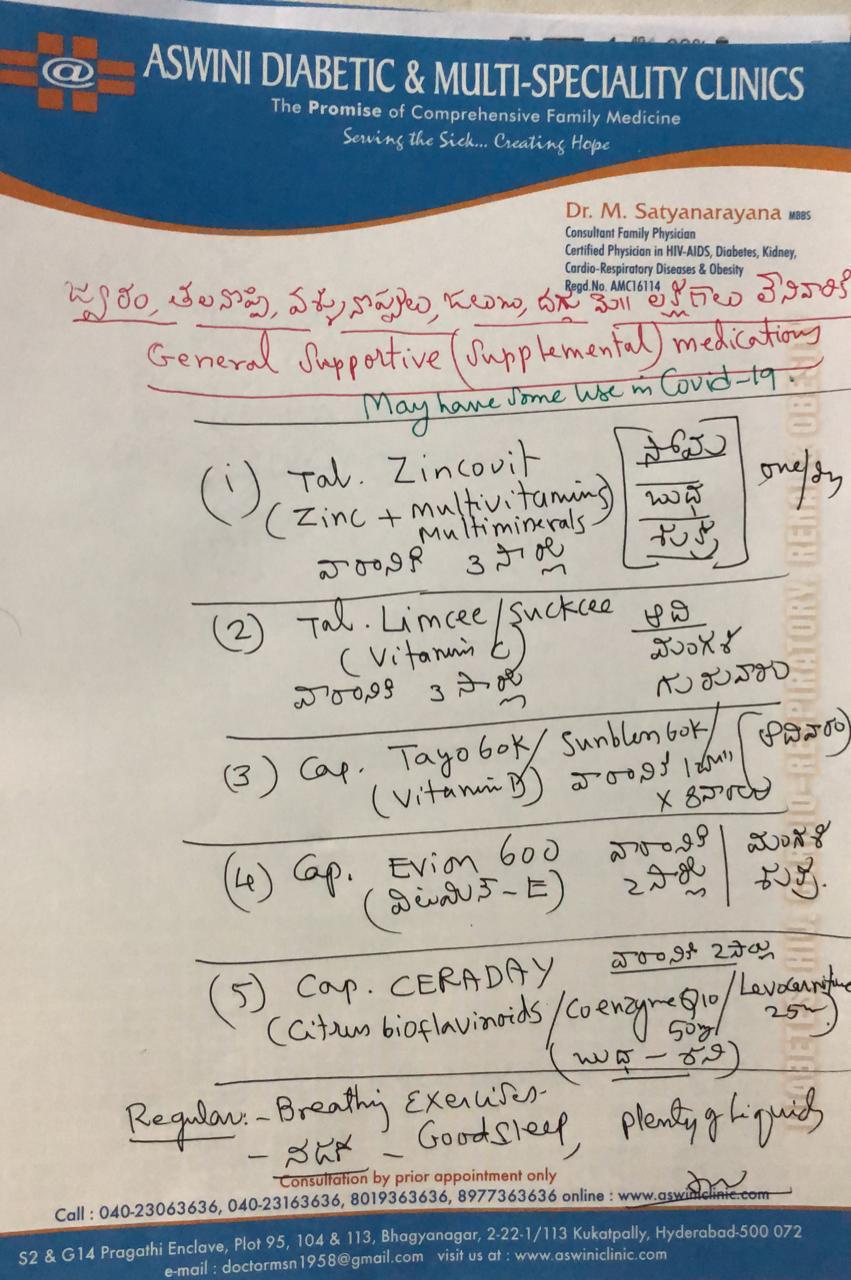 @ ASWINI DIABETIC & MULTI-SPECIALITY CLINICS
The Promise of Comprehensive Family Medicine
Serving the Sick... Creating Hope
Dr. M. Satyanarayana MBBS
Consultant Family Physician
Certified Physician in HIV-AIDS, Diabetes, Kidney,
Cardio-Respiratory Diseases & Obesity
Regd.No. AMC16114
జ్వరం, తలనొప్పి, వళ్ళునొప్పులు, జలుబు, దగ్గు మొ॥ లక్షణాలు లేనివారికి
General Supportive (Supplemental) medications
May have some use in Covid-19.
(1) Tab. Zincovit [సోమ one/day
(Zinc + multivitamins బుధ
Multiminerals) శుక్ర]
వారానికి 3 సార్లు
(2) Tab. Limcee/Suckcee ఆది
(Vitamin C) మంగళ
వారానికి 3 సార్లు గురువారం
(3) Cap. Tayo 60k/ Sunblen 60k/ (ఆదివారం)
(Vitamin D) వారానికి 1
x 8 వారాలు
(4) Cap. Evion 600 వారానికి | మంగళ
(విటమిన్-E) 2 సార్లు | శుక్ర.
(5) Cap. CERADAY వారానికి 2 సార్లు
(Citrus bioflavinoids/Coenzyme Q10/Levocarnitine
50mg 25m)
(బుధ - శని)
Regular: - Breathing Exercises-
- నడక - Good sleep, plenty of Liquids
Consultation by prior appointment only
Call : 040-23063636, 040-23163636, 8019363636, 8977363636 online : www.aswiniclinic.com
S2 & G14 Pragathi Enclave, Plot 95, 104 & 113, Bhagyanagar, 2-22-1/113 Kukatpally, Hyderabad-500 072
e-mail : doctormsn1958@gmail.com visit us at : www.aswiniclinic.com